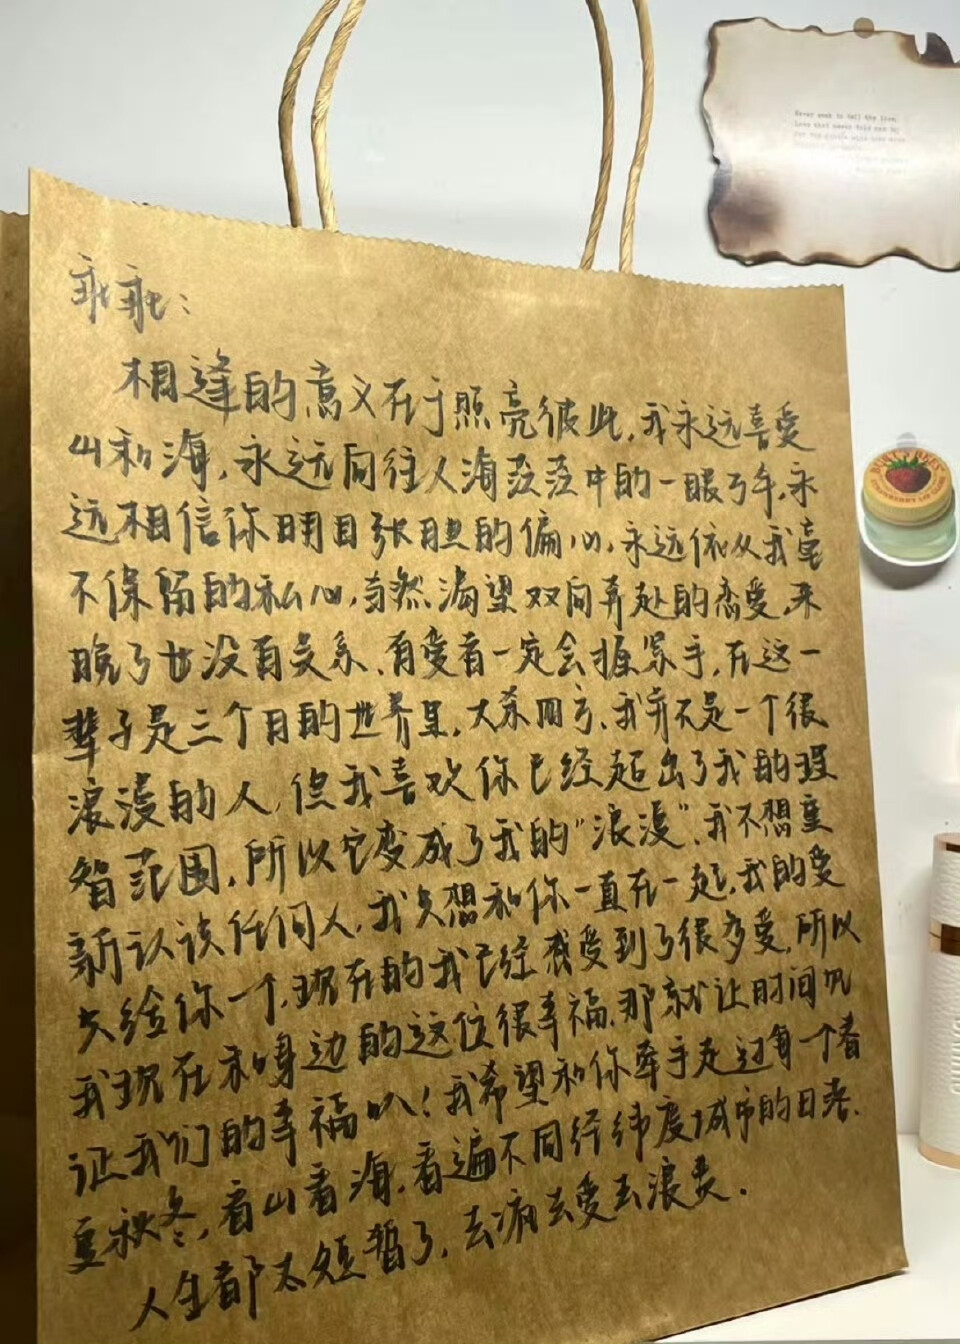 乖乖:
相逢的意义在于照亮彼此,我永远喜爱
山和海,永远向往人海茫茫中的一眼万年,永
远相信你明目张胆的偏心,永远依从我毫
不保留的私心,当然渴望双向奔赴的恋爱,来
晚了也没有关系,有爱者一定会握紧手,在这一
辈子是三个目的世界里,大杀四方,我并不是一个很
浪漫的人,但我喜欢你已经超出了我的理
智范围,所以它变成了我的“浪漫”,我不想重
新认识任何人,我只想和你一直在一起,我的爱
只给你一个,现在的我已经感受到了很多爱,所以
我现在和身边的这位很幸福,那就让时间见
证我们的幸福叭!我希望和你牵手走过每一个春
夏秋冬,看山看海,看遍不同经纬度城市的日落.
人生都太短暂了,去疯去爱去浪费.
Never seek to tell thy love,
Love that never told can be;
For the gentle wind does move
BURT'S BEES